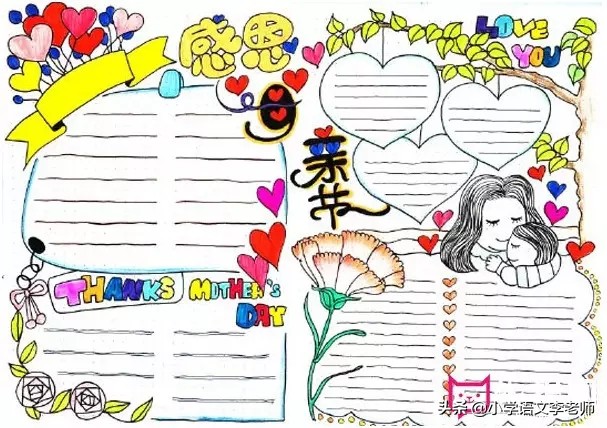 感恩
母亲节
LOVE
YOU
THANKS MOTHER'S
DAY
头条 @小学语文李老师